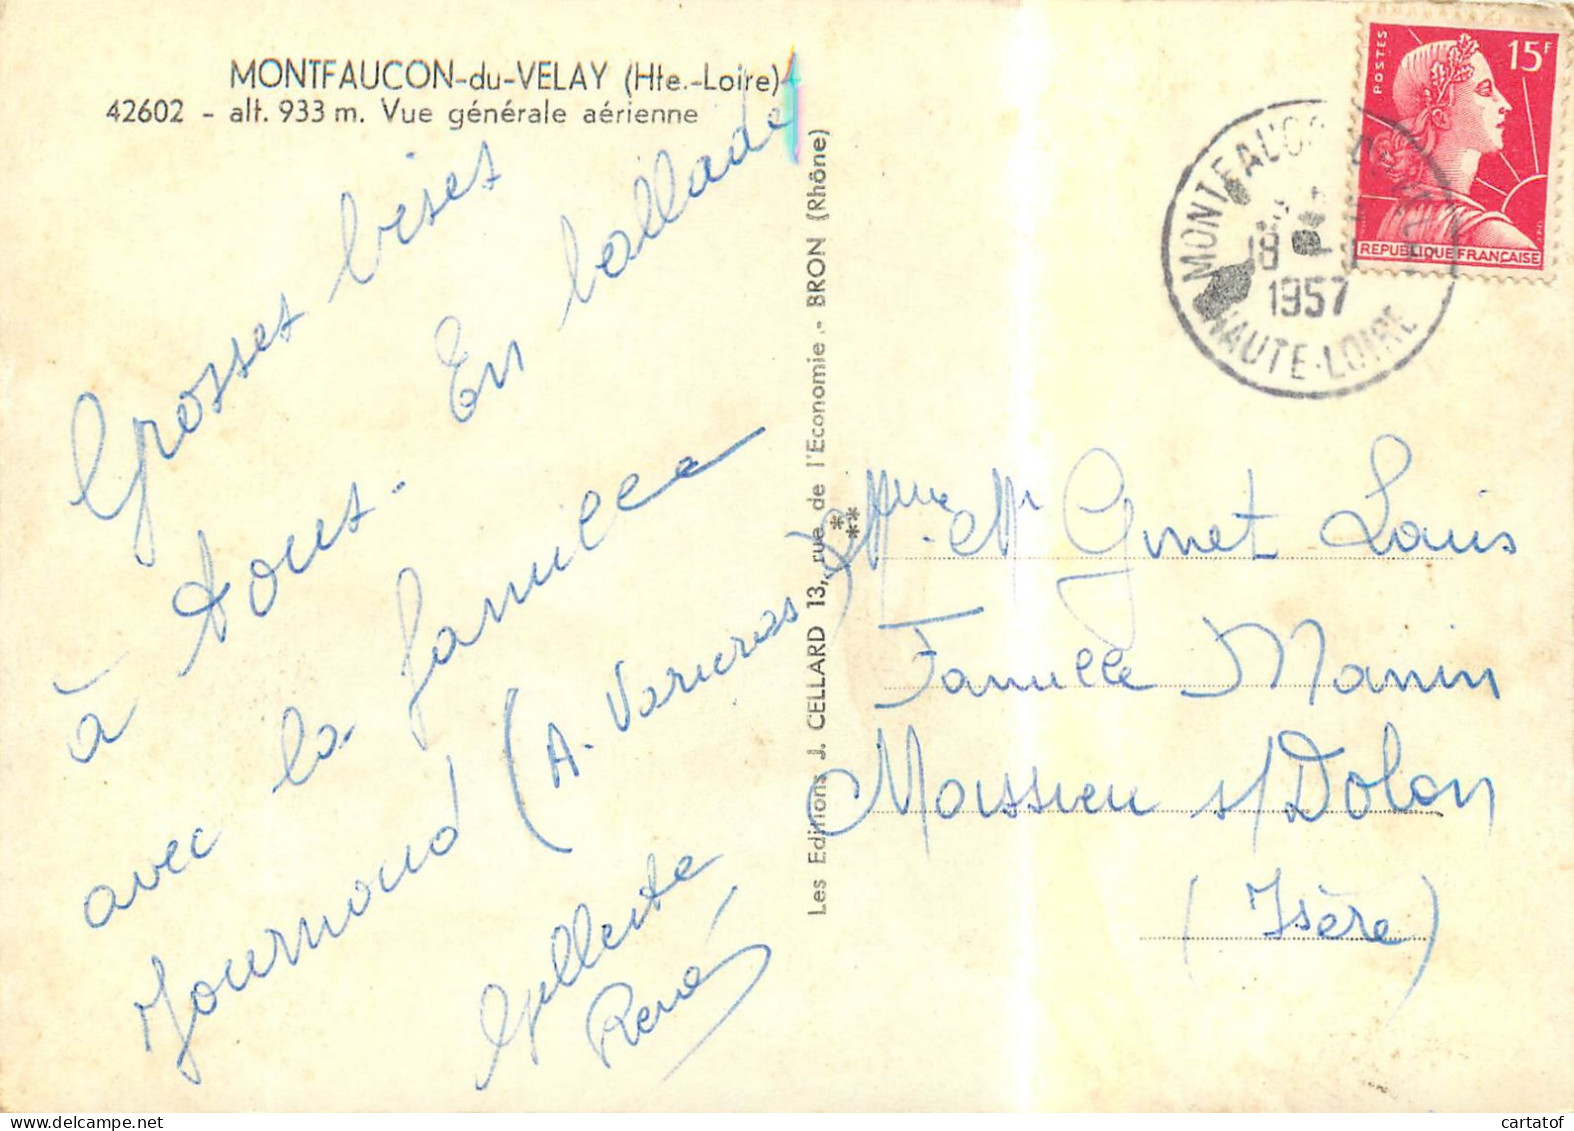 MONTFAUCON-du-VELAY (Hte.-Loire)
42602 - alt. 933 m. Vue générale aérienne
Grosses bises
à tous. En ballade
avec la famille
Journoud (A. Varieras)
René
Les Editions J. CELLARD 13, rue de l'Economie.- BRON (Rhône)
**
POSTES
15F
REPUBLIQUE FRANÇAISE
18
1957
HAUTE-LOIRE
Mme Mr Ginet Louis
Famille Manin
Massieu s/Dolon
(Isère)
cartatof